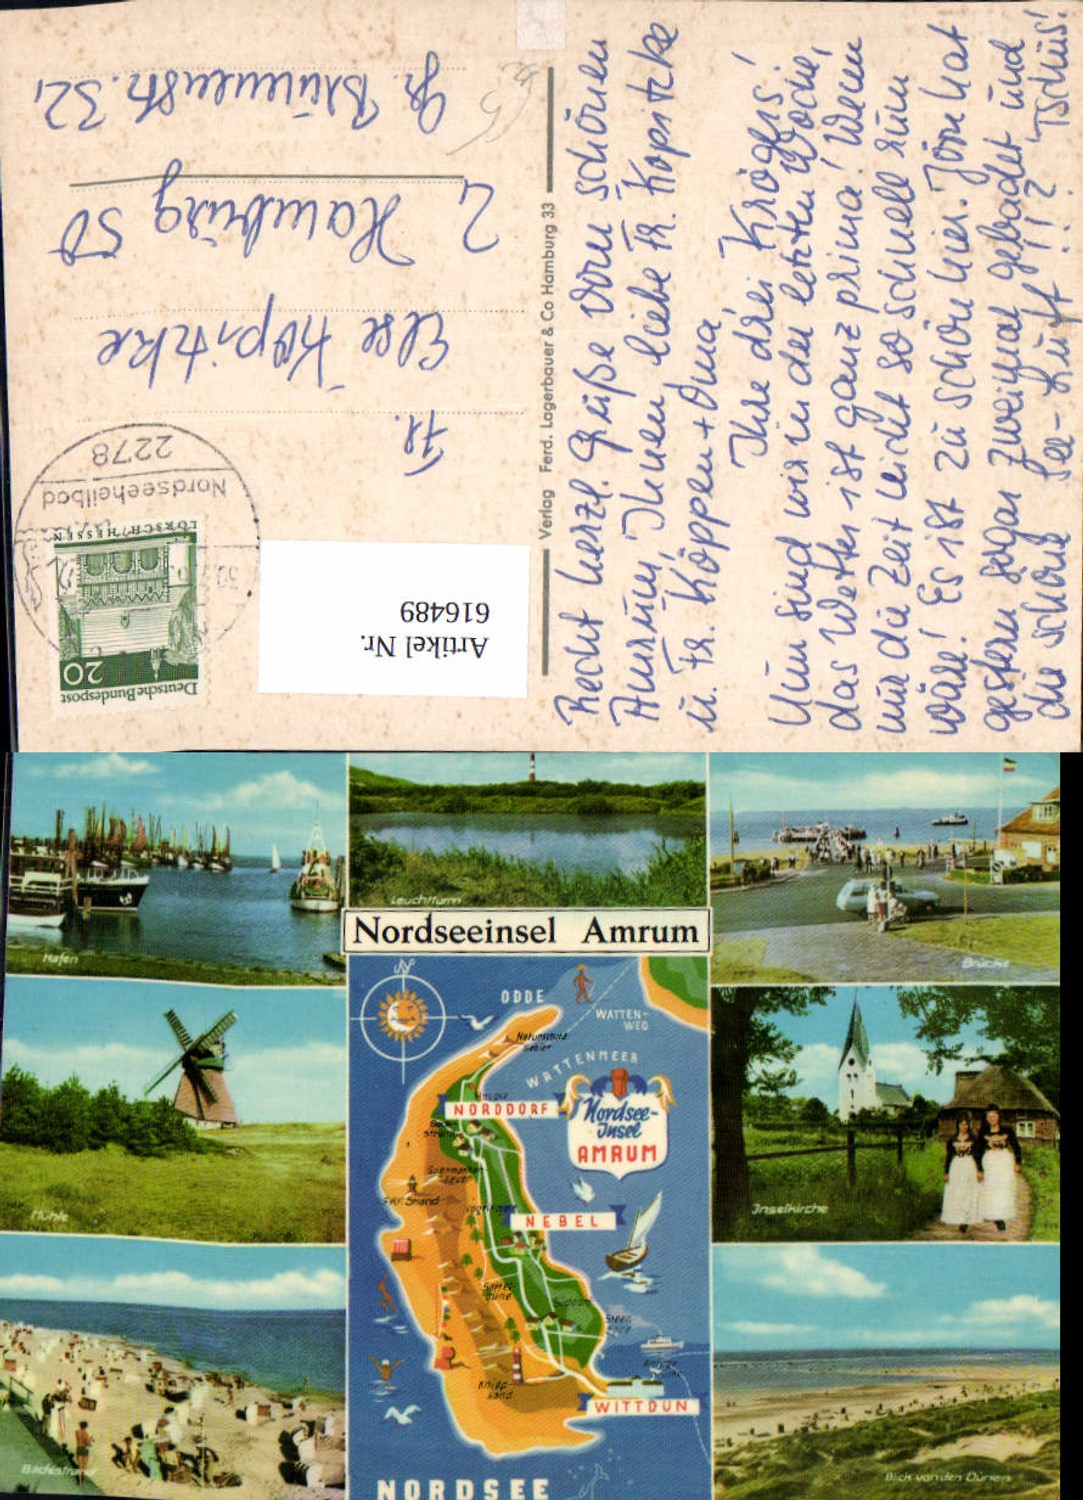 Recht herzl. Grüße vom schönen
Amrum, Ihnen liebe Fr. Kopitzke
u. Fr. Köppen + Oma
Ihre drei Krögers!
Nun sind wir in der letzten Woche,
das Wetter ist ganz prima! Wenn
nur die Zeit nicht so schnell rum
wäre! Es ist zu schön hier. Jörn hat
gestern sogar zweimal gebadet und
die schöne See-Luft!!? Tschüs!
Verlag Ferd. Lagerbauer & Co Hamburg 33
Deutsche Bundespost
20
LORSCH/HESSEN
2278
Nordseeheilbad
Artikel Nr.
616489
Fr.
Else Kopitzke
2 Hamburg 50
Gr. Brunnenstr. 32,
Hafen
Leuchtturm
Brücke
Nordseeinsel Amrum
Mühle
Inselkirche
Badestrand
Blick von den Dünen
N
ODDE
WATTEN-
WEG
Naturschutz
Gebiet
WATTENMEER
NORDDORF
Nordsee-
Insel
AMRUM
NEBEL
Satteldüne
Süddorf
Steenodde
Kniep-
sand
WITTDÜN
NORDSEE